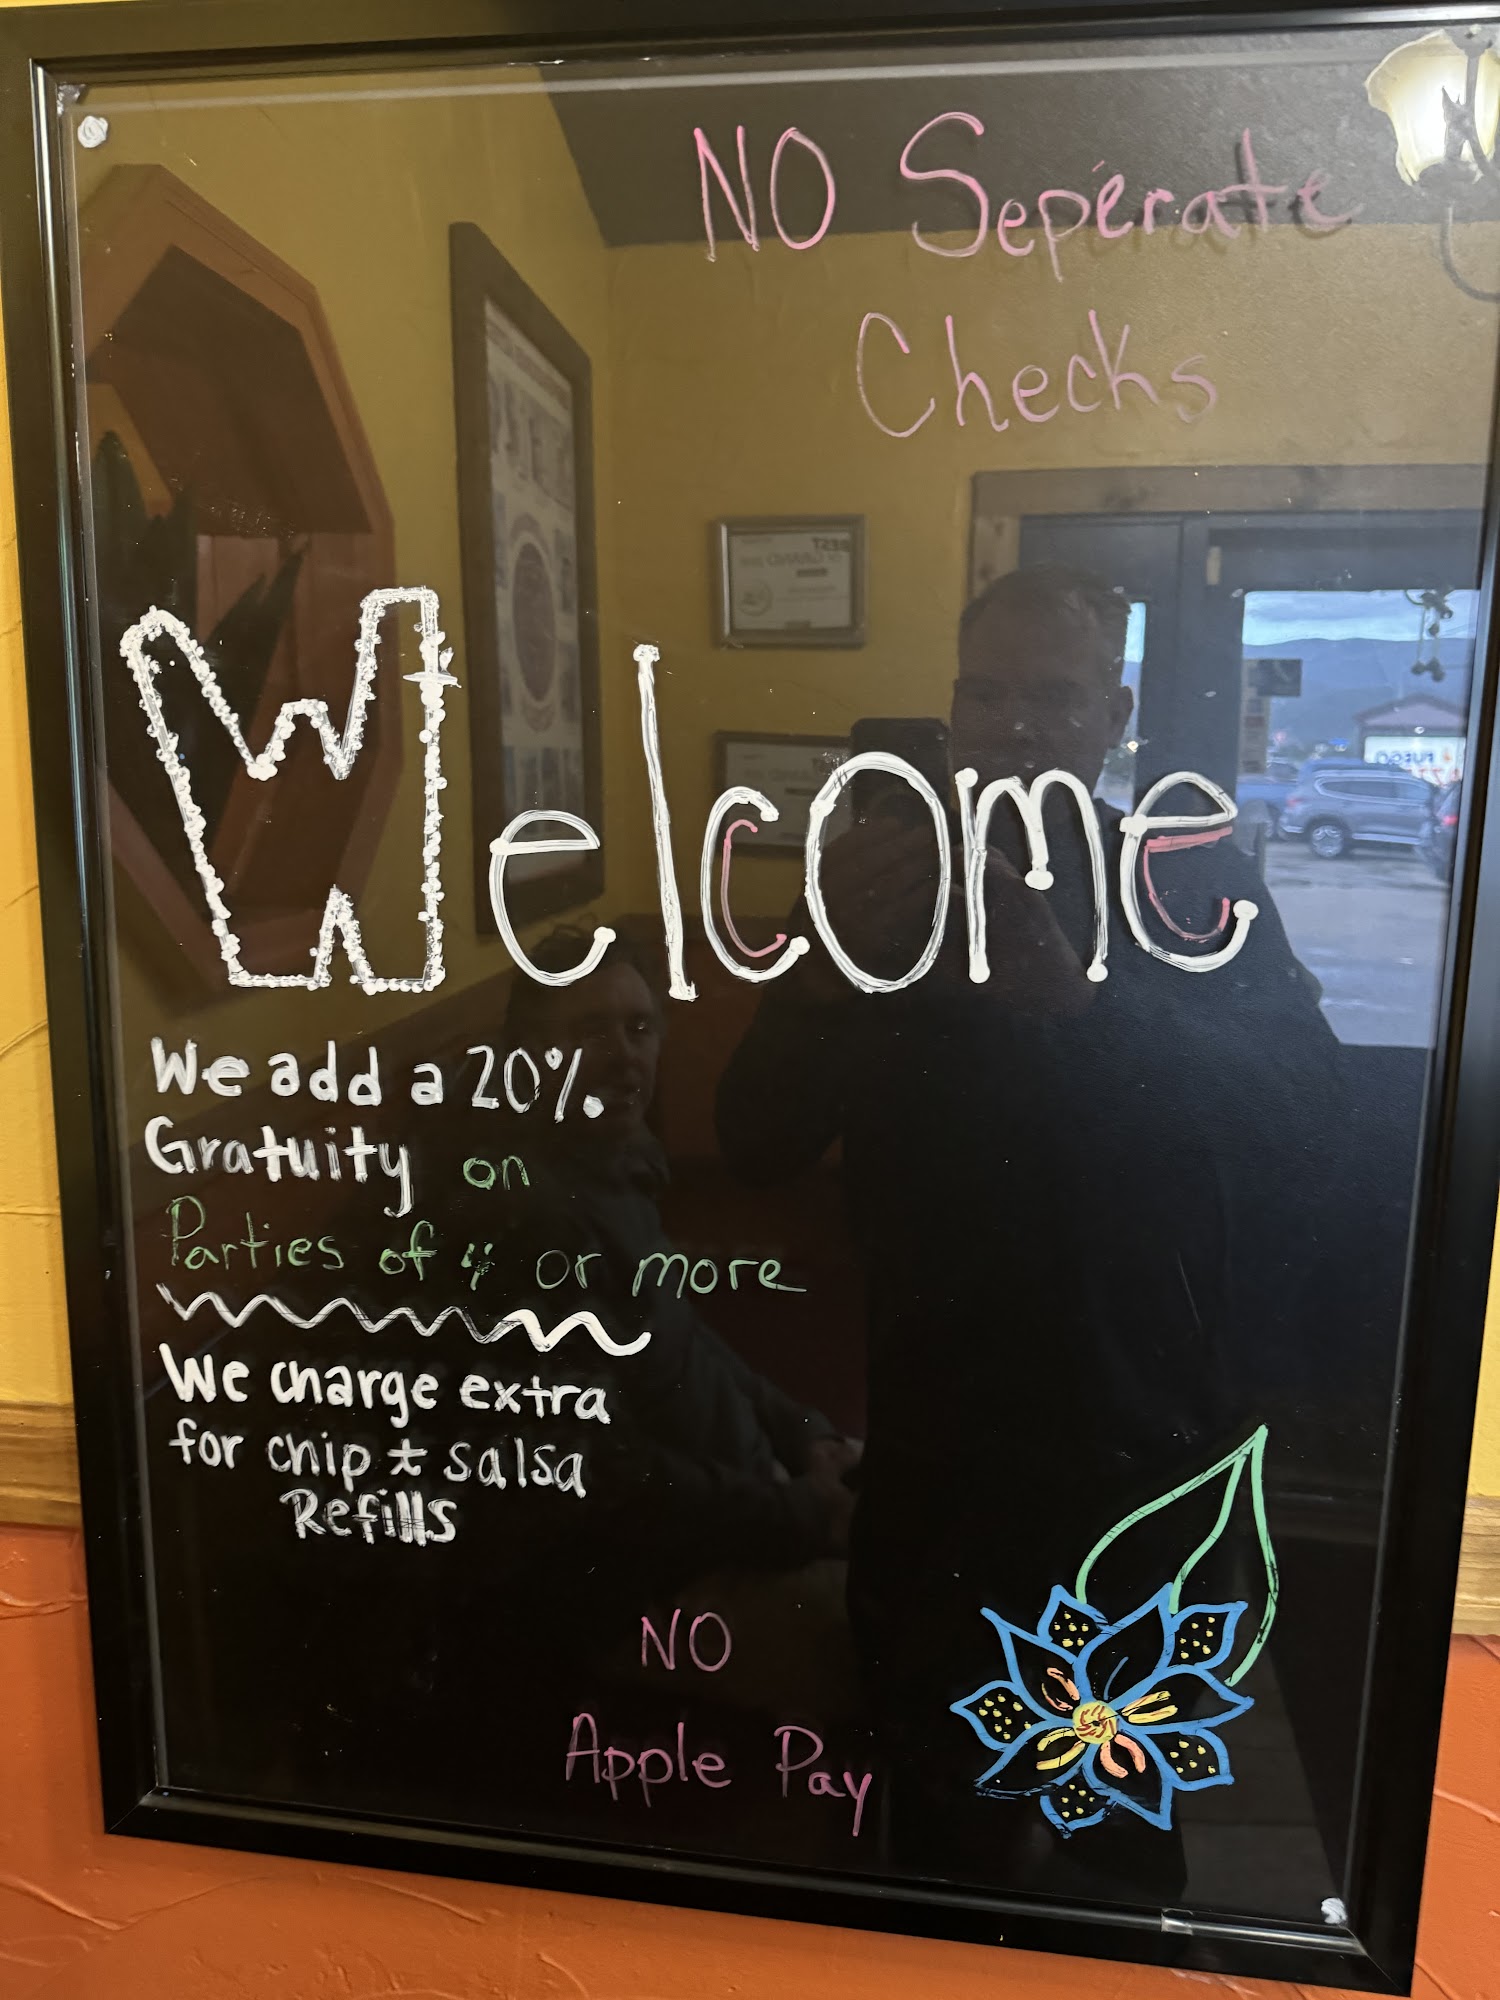 NO Seperate
Checks
Welcome
We add a 20%
Gratuity on
Parties of 4 or more
We charge extra
for chip & salsa
Refills
NO
Apple Pay